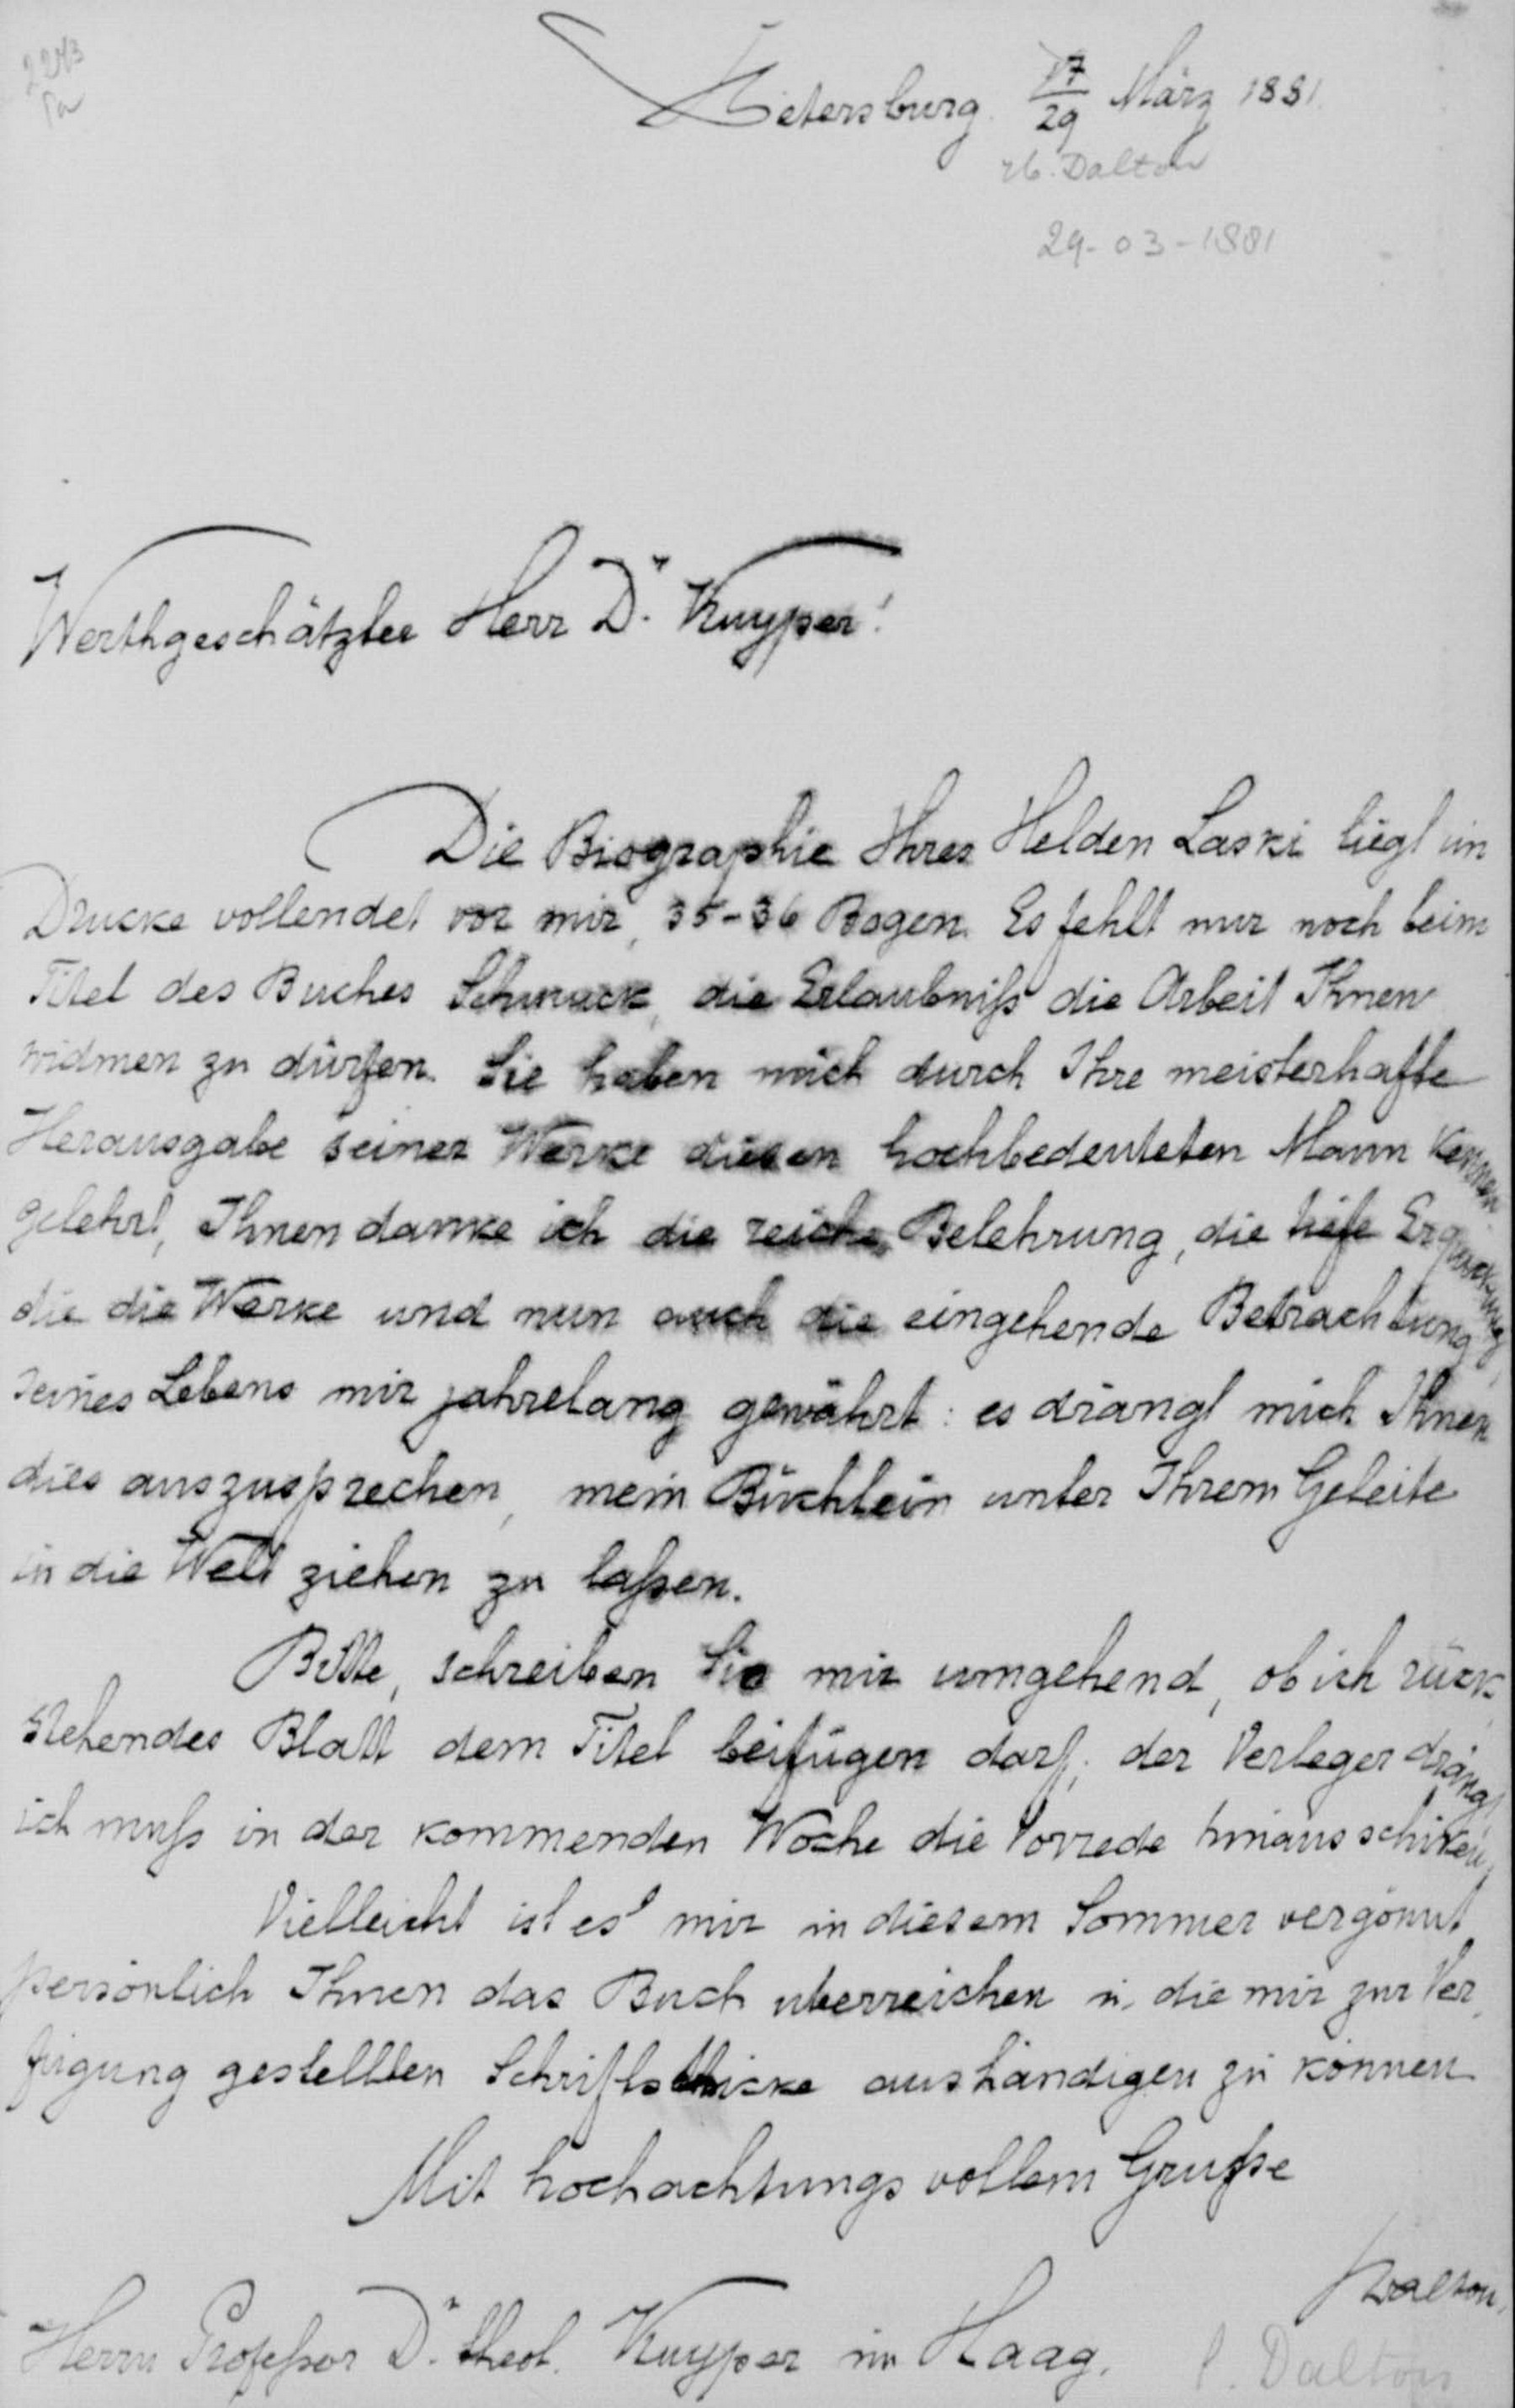 2243
Petersburg. 17/29 März 1881.
H. Dalton
29-03-1881
Werthgeschätzter Herr Dr. Kuyper!
Die Biographie Ihres Helden Laski liegt im
Drucke vollendet vor mir, 35-36 Bogen. Es fehlt nur noch beim
Titel des Buches Schmuck, die Erlaubniß die Arbeit Ihnen
widmen zu dürfen. Sie haben mich durch Ihre meisterhafte
Herausgabe seiner Werke diesen hochbedeuteten Mann kennen
gelehrt, Ihnen danke ich die reiche Belehrung, die tiefe Erquickung,
die die Werke und nun auch die eingehende Betrachtung
seines Lebens mir jahrelang gewährt: es drängt mich Ihnen
dies auszusprechen, mein Büchlein unter Ihrem Geleite
in die Welt ziehen zu laßen.
Bitte, schreiben Sie mir umgehend, ob ich rück-
stehendes Blatt dem Titel beifügen darf; der Verleger drängt,
ich muß in der kommenden Woche die Vorrede hinausschiken.
Vielleicht ist es mir in diesem Sommer vergönnt
persönlich Ihnen das Buch uberreichen u. die mir zur Ver-
fügung gestellten Schriftstücke aushändigen zu können
Mit hochachtungsvollem Gruße
Dalton.
Herrn Profeßor Dr. theol. Kuyper im Haag.
Dalton